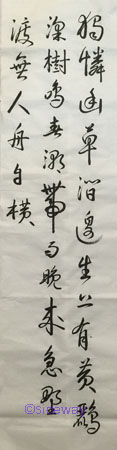 獨憐幽草澗邊生上有黃鸝
深樹鳴春潮帶雨晚來急野
渡無人舟自橫